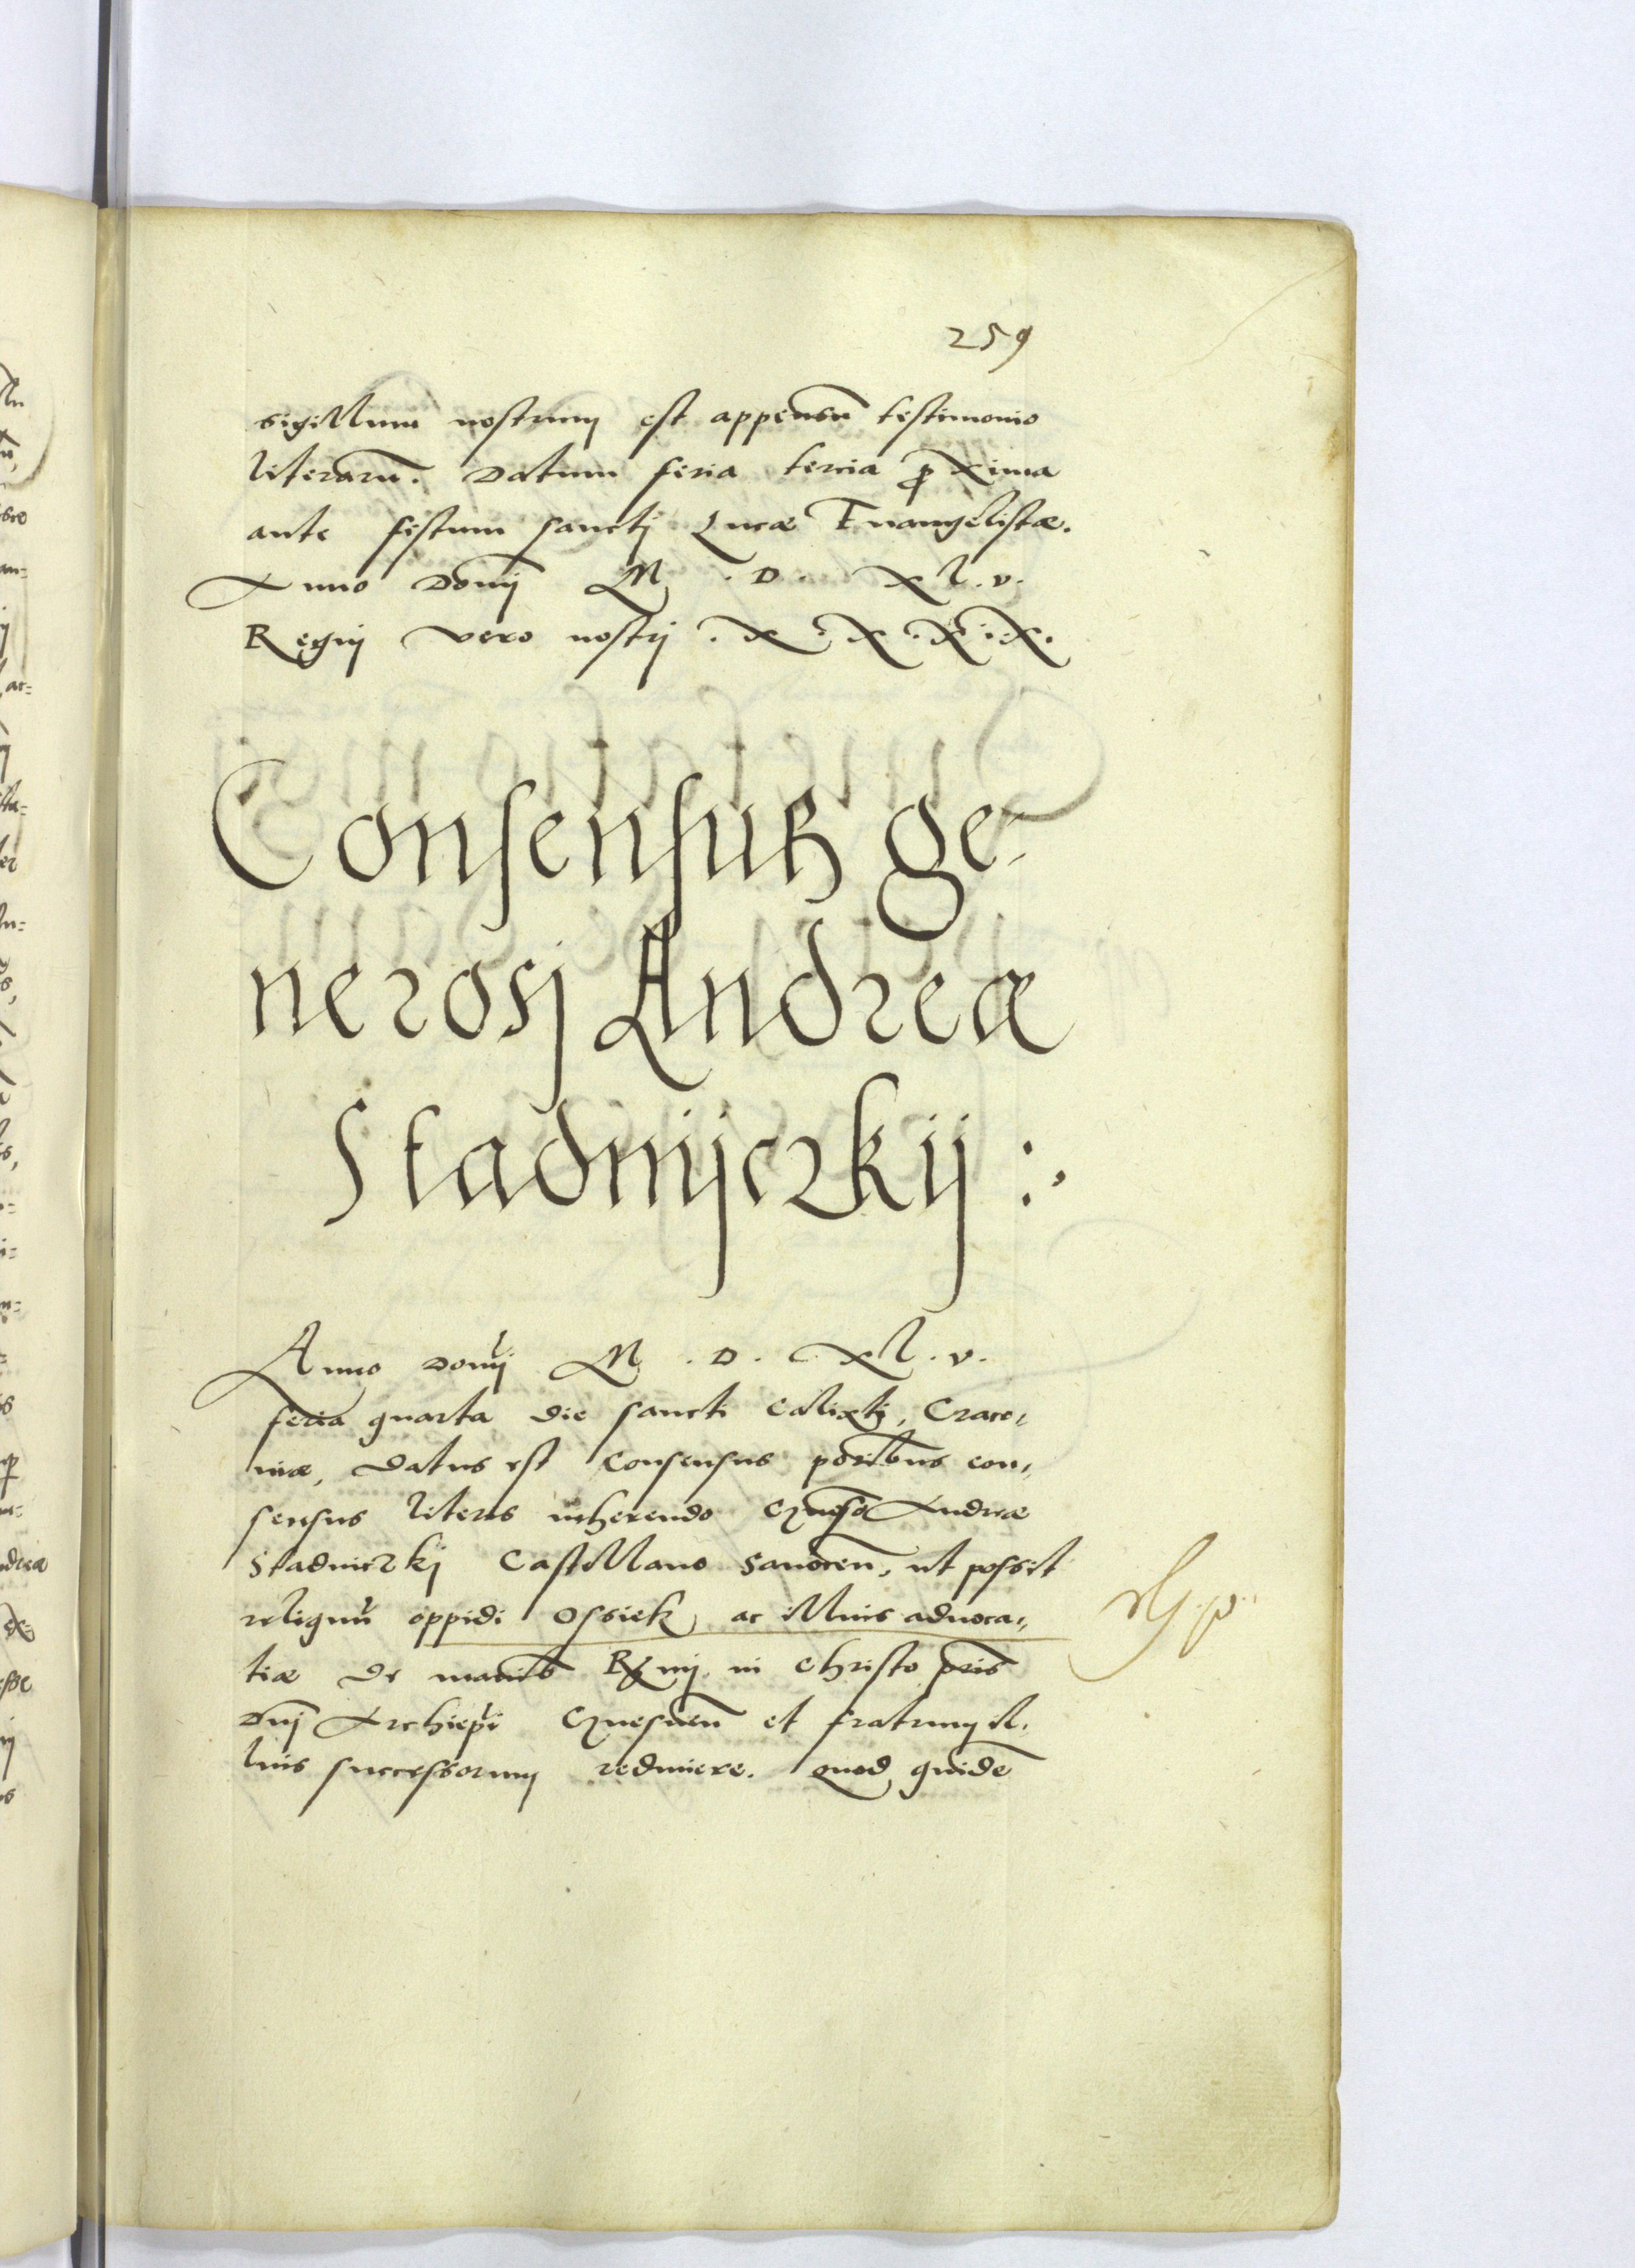 259
sigillum nostrum est appensū testimonio
literarū. Datum feria tercia proxima
ante festum sancti Lucæ Euangelistæ.
Anno Domī M . D . XL . v .
Regni vero nostri . X . X . X . i . X .
Consensus ge-
nerosj Andreæ
Stadnijczkij :
Anno Domī M . D . XL . v .
feria quarta die sancti Calixti, Craco-
uiæ, Datus est Consensus prioribus con-
sensus literis inherendo Andreæ
Stadniczkj Castellano Sanocen̄, ut possit
reliquū oppidi Ossiek ac illius aduoca-
tiæ de manib R mi in Christo pris
Dnj Archiepi Gnesnen̄ et fratrum il-
lius successorum redimere. Quod quidē